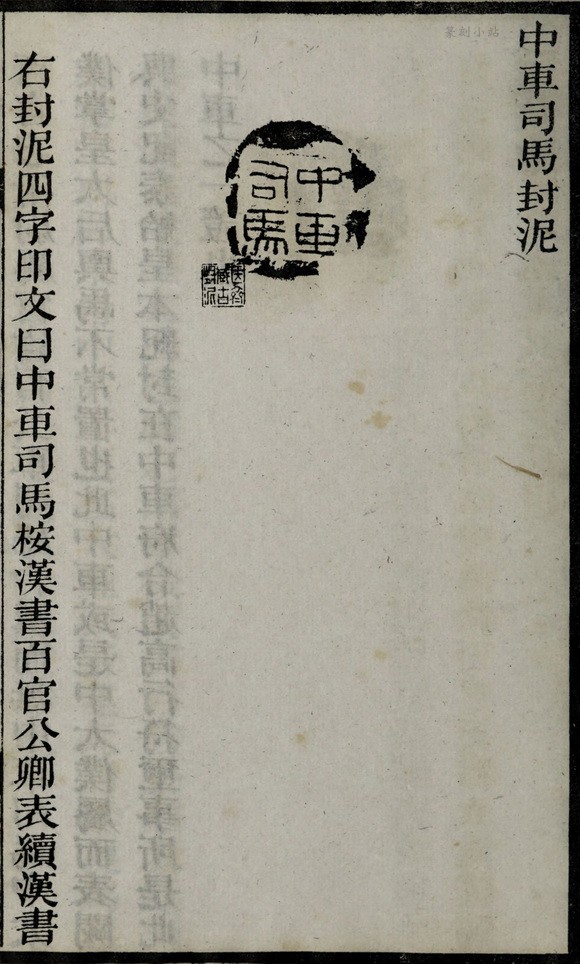 中車司馬封泥
篆刻小站
中車
司馬
右封泥四字印文曰中車司馬桉漢書百官公卿表續漢書